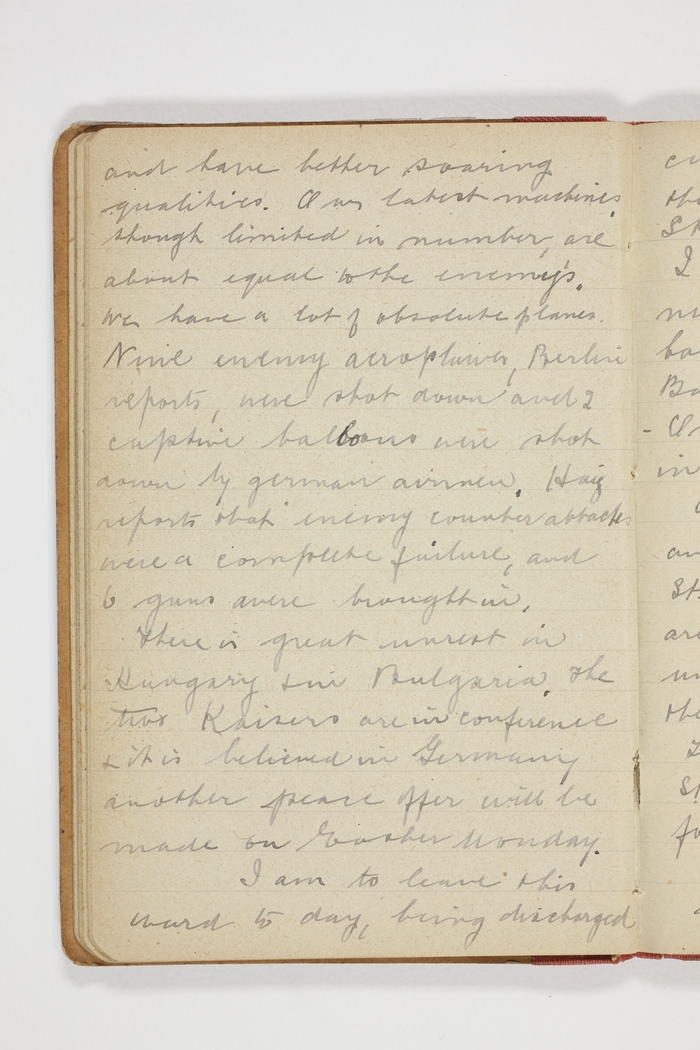 and have better soaring
qualities. Our latest machines,
though limited in number, are
about equal to the enemy's.
We have a lot of absolute planes.
Nine enemy aeroplanes, Berlin
reports, were shot down and 2
captive balloons were shot
down by german airmen. Haig
reports that enemy counter attacks
were a complete failure, and
6 guns were brought in.
There is great unrest in
Hungary & in Bulgaria. The
two Kaisers are in conference
& it is believed in Germany
another peace offer will be
made on Easter Monday.
I am to leave this
ward to day, being discharged